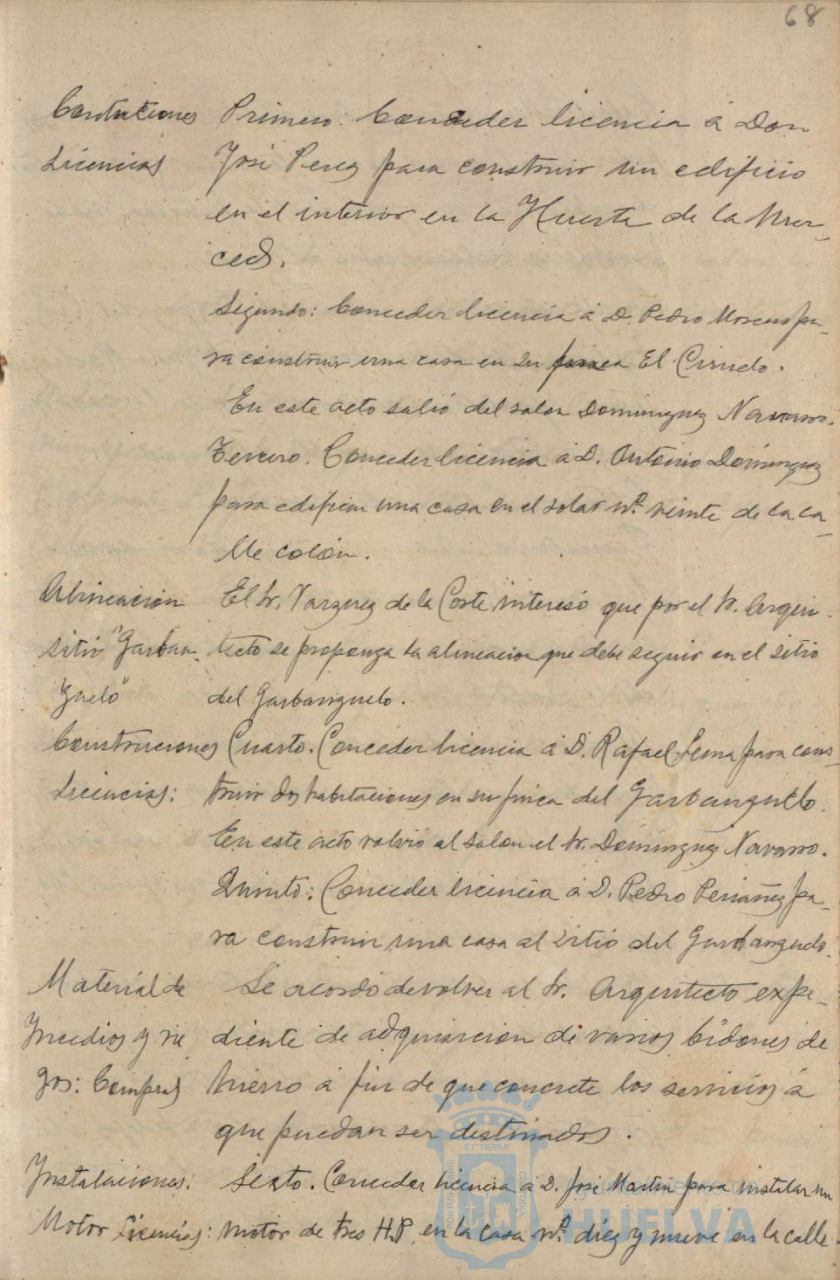 68
Contuciones Primero: Conceder licencia á Don
Licencias José Perez para construir un edificio
en el interior en la Huerta de la Mer-
ced.
Segundo: Conceder licencia á D. Pedro Moreno pa-
ra construir una casa en su finca El Ciruelo.
En este acto salió del salon Dominguez Navarro.
Tercero. Conceder licencia á D. Antonio Dominguez
para edificar una casa en el solar nº veinte de la ca-
lle colón.
Alineacion El Sr. Vazquez de la Corte interesó que por el Sr. Arqui-
sitio "Garban- tecto se proponga la alineacion que debe seguir en el sitio
zuelo" del Garbanzuelo.
Construcciones Cuarto. Conceder licencia á D. Rafael para cons-
Licencias: truir dos habitaciones en su finca del Garbanzuelo.
En este acto volvió al salon el Sr. Dominguez Navarro.
Quinto: Conceder licencia á D. Pedro Periañez pa-
ra construir una casa al sitio del Garbanzuelo.
Material de Se acordó devolver al Sr. Arquitecto expe-
Yncedios y rie diente de adquisicion de varios bidones de
gos: Compras hierro á fin de que concrete los servicios á
que puedan ser destinados.
Ynstalaciones: Sexto. Conceder licencia á D. José Martin para instalar un
Motor Licencias: motor de tres H.P. en la casa nº diez y nueve en la calle
HUELVA